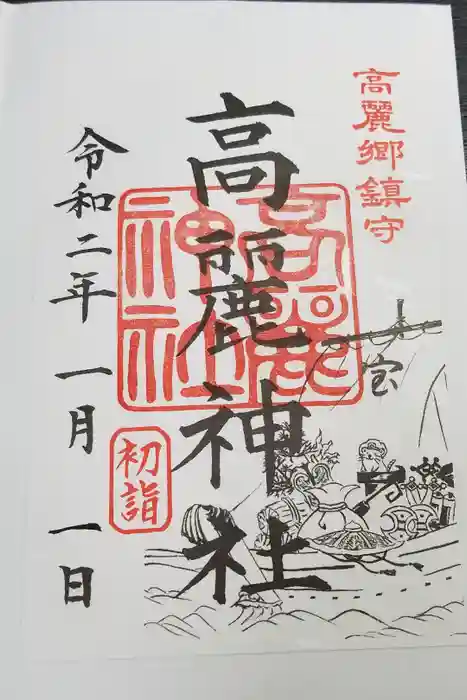 高麗郷鎮守
高麗神社
高麗神社
宝
初詣
令和二年 一月 一日